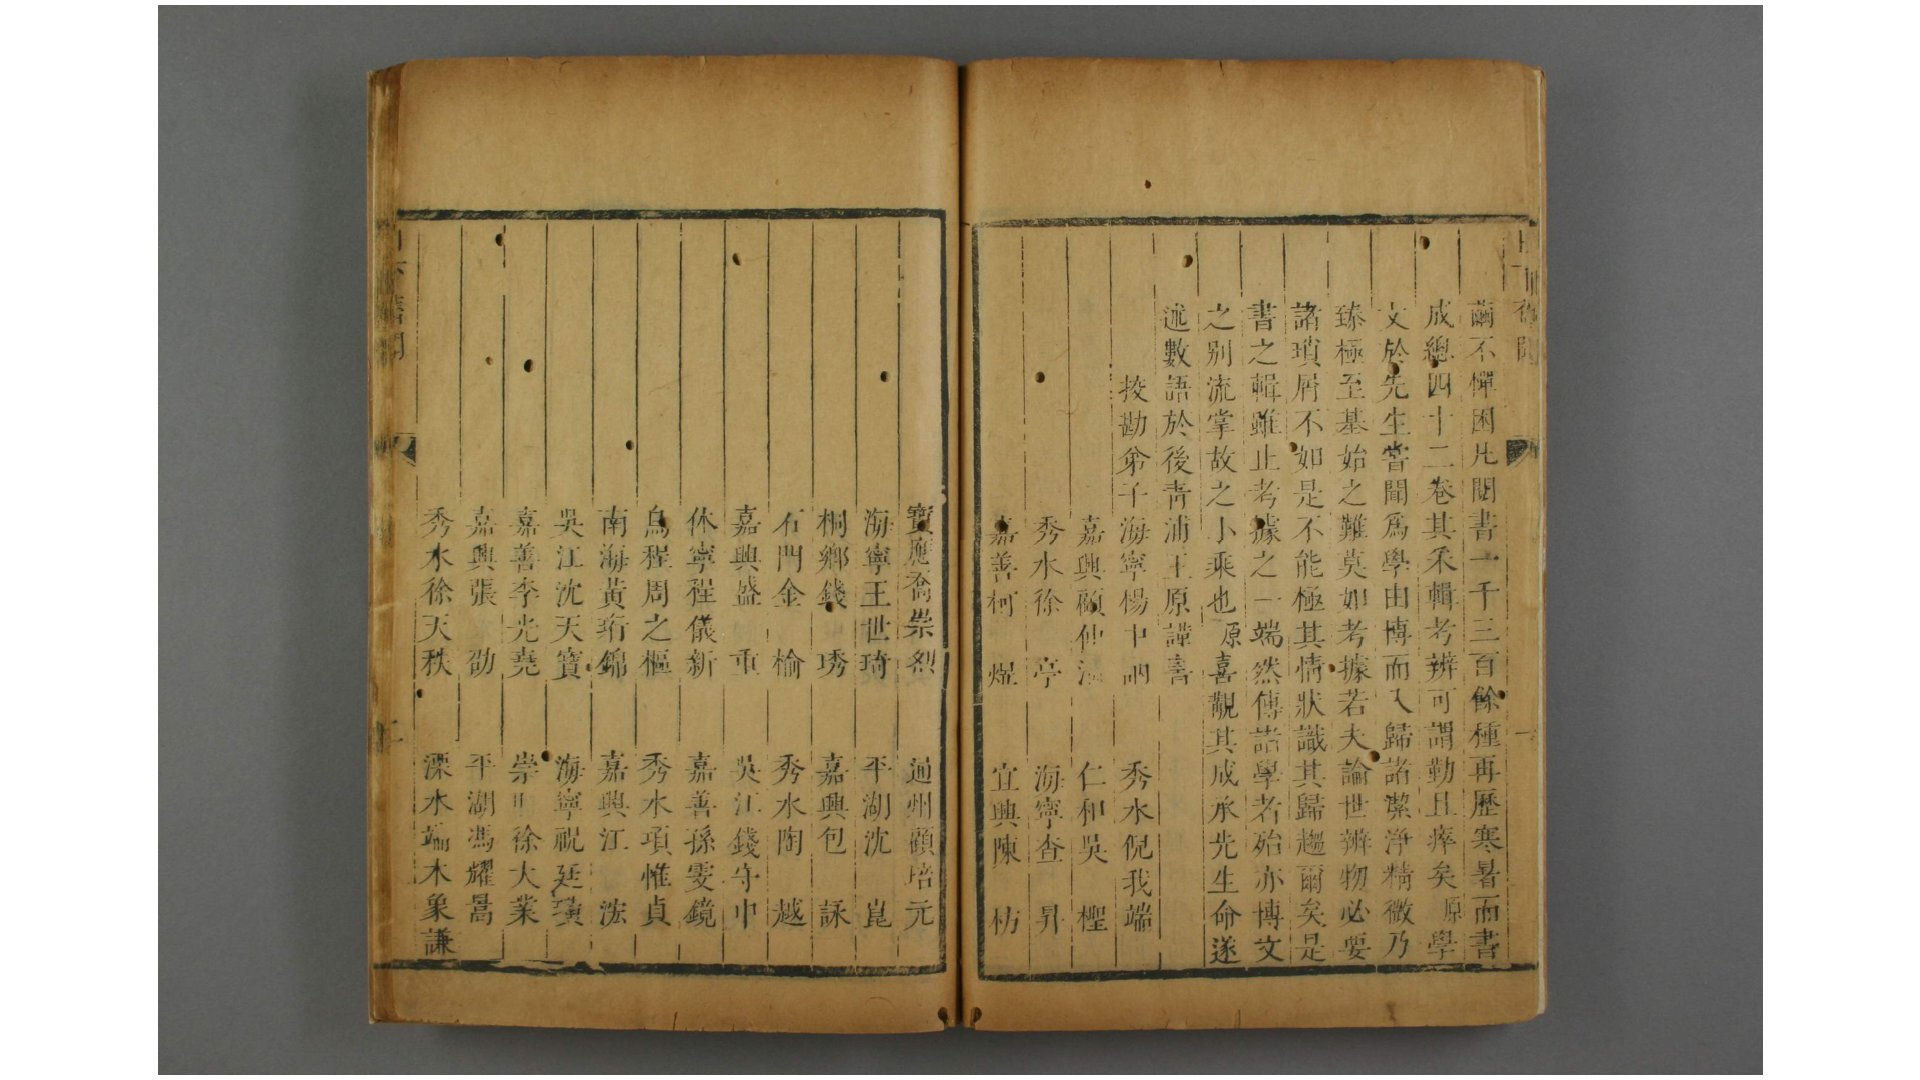 日下舊聞
繭不憚困凡閱書一千三百餘種再歷寒暑而書
成總四十二卷其采輯考辨可謂勤且瘁矣原學
文於先生嘗聞爲學由博而入歸諸潔淨精微乃
臻極至基始之難莫如考據若夫論世辨物必要
諸瑣屑不如是不能極其情狀識其歸趨爾矣是
書之輯雖止考據之一端然傳諸學者殆亦博文
之别流掌故之小乘也原喜觀其成承先生命遂
述數語於後青浦王原謹書
挍勘弟子海寧楊中訥 秀水倪我端
嘉興顧仲清 仁和吳檉
秀水徐亭 海寧查昇
嘉善柯煜 宜興陳枋
寶應喬崇烈 通州顧培元
海寧王世琦 平湖沈崑
桐鄉錢琇 嘉興包詠
石門金榆 秀水陶越
嘉興盛重 吳江錢守中
休寧程儀新 嘉善孫雯鏡
烏程周之樞 秀水項惟貞
南海黃珩錦 嘉興江浤
吳江沈天寶 海寧祝廷璜
嘉善李光堯 崇明徐大業
嘉興張劭 平湖馮耀暠
秀水徐天秩 溧水端木象謙
日下舊聞
二